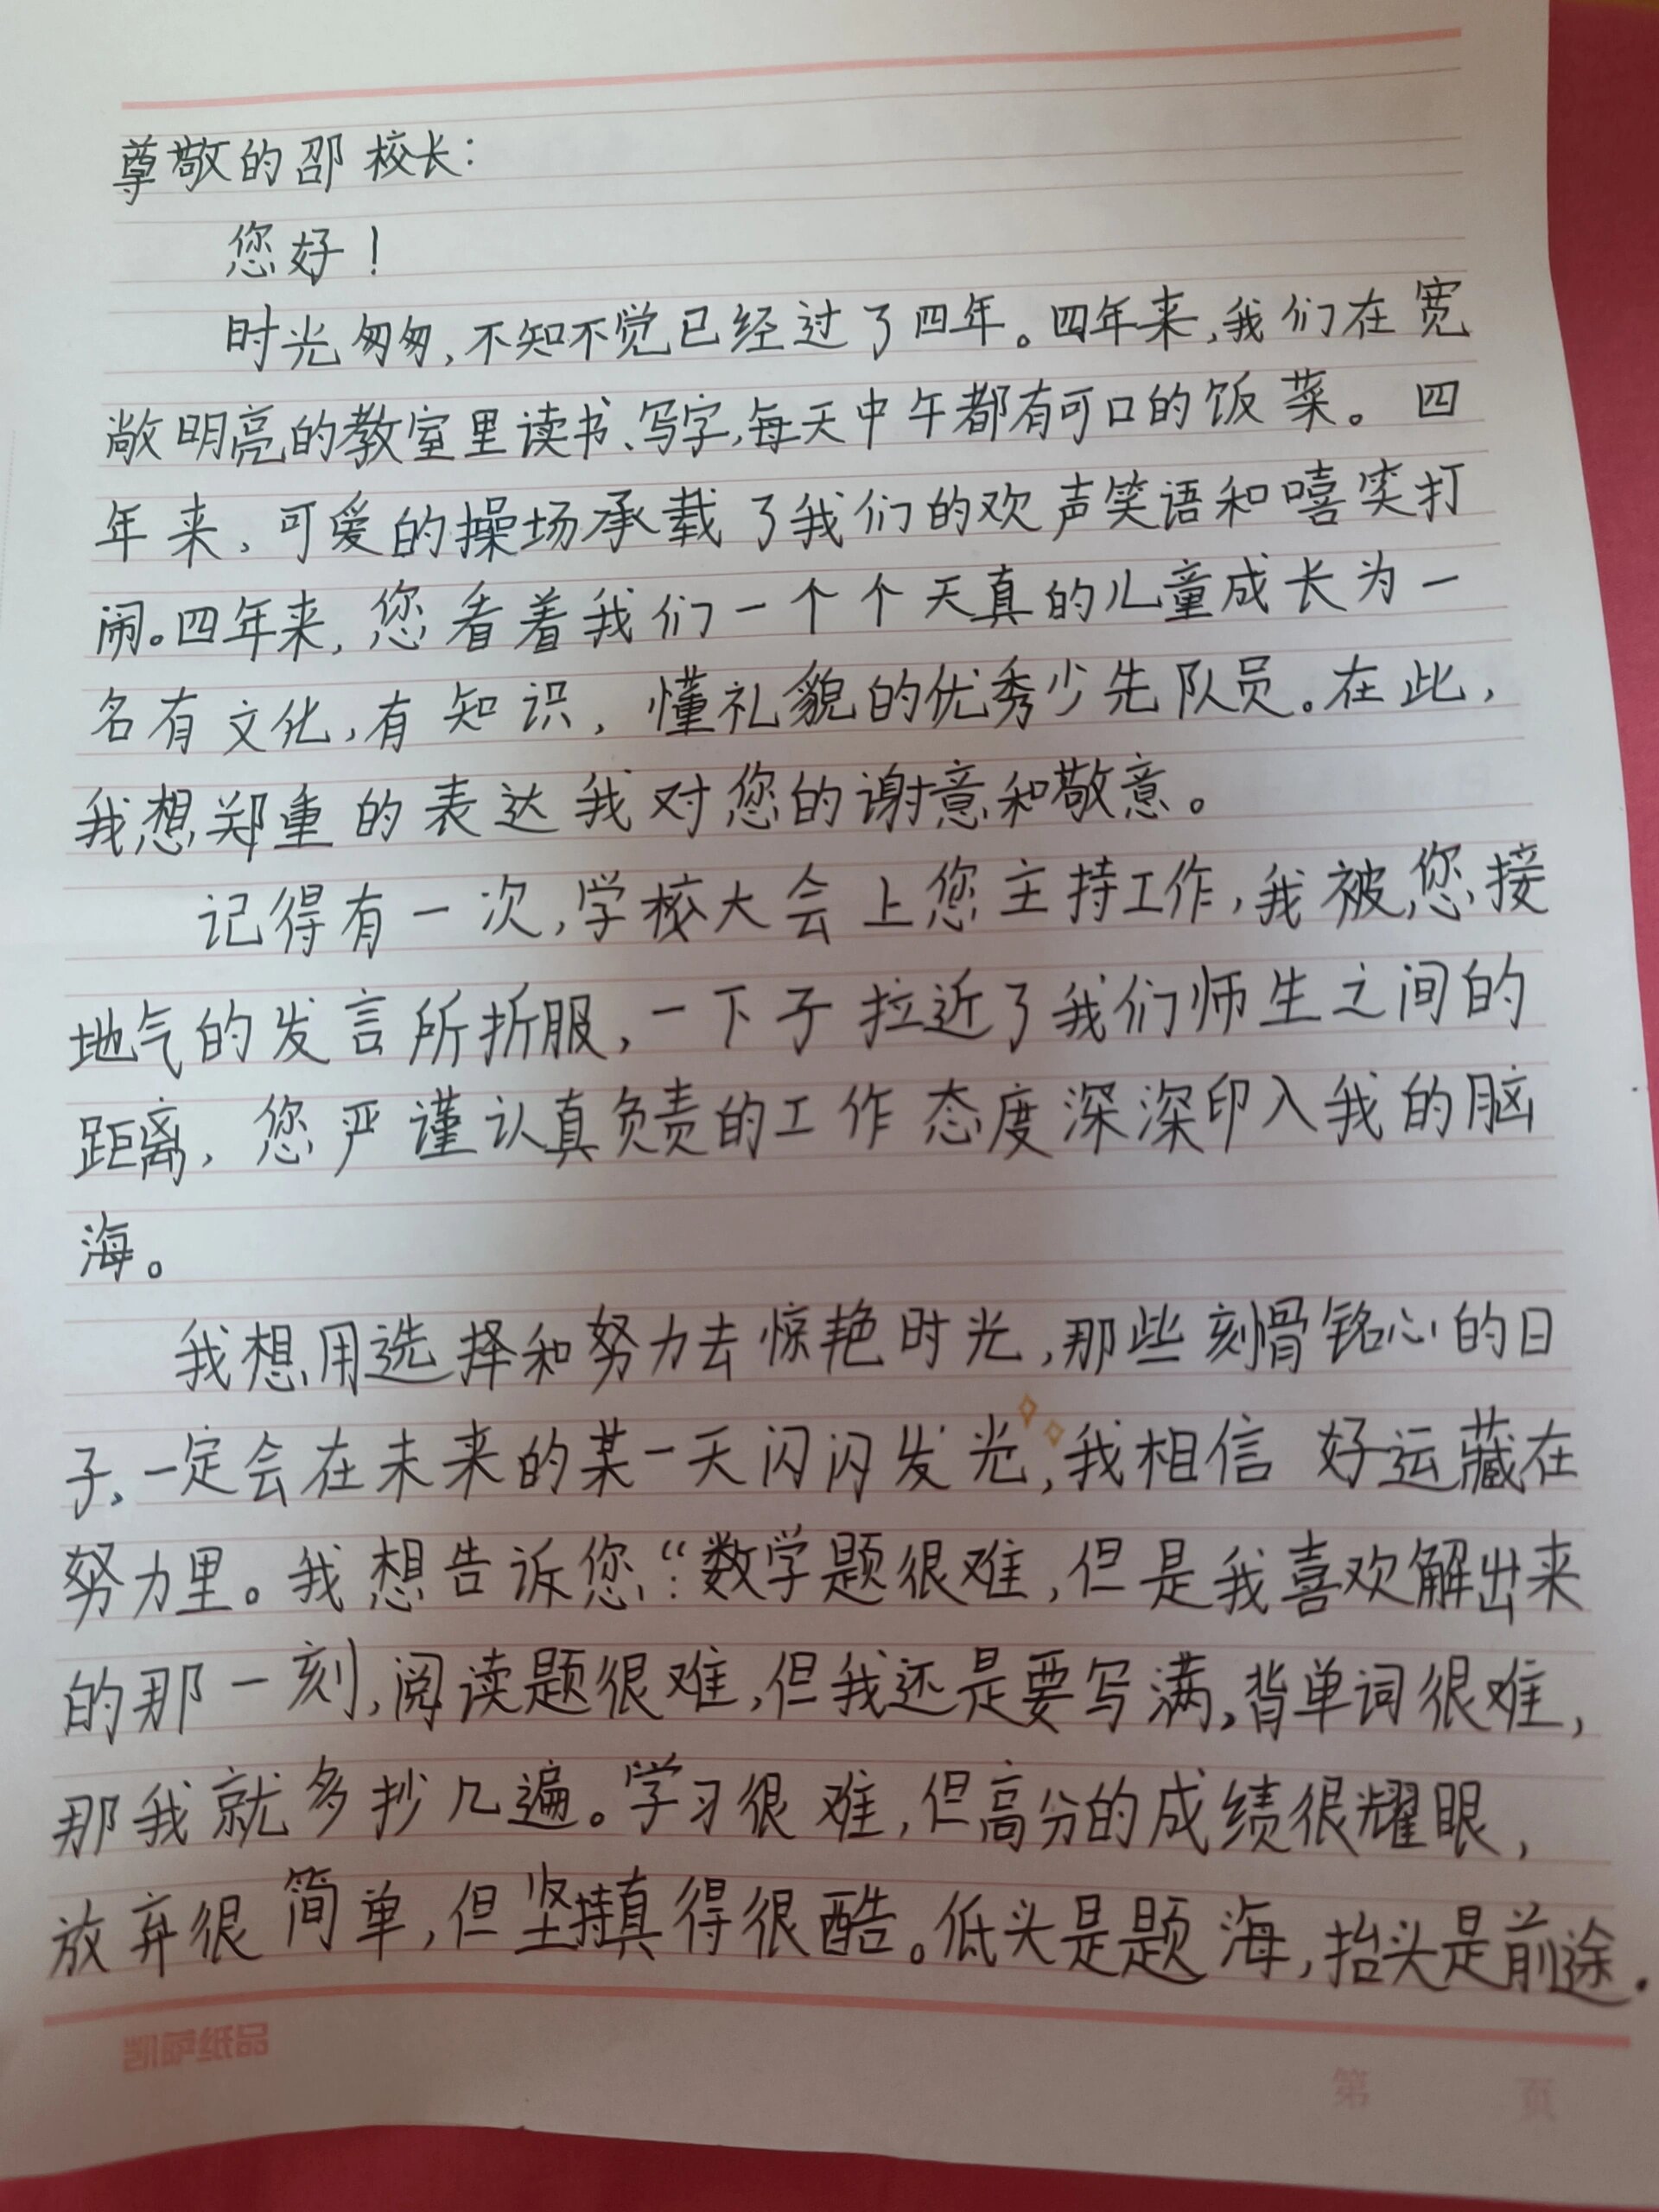 尊敬的邵校长：
您好！
时光匆匆，不知不觉已经过了四年。四年来，我们在宽
敞明亮的教室里读书、写字，每天中午都有可口的饭菜。四
年来，可爱的操场承载了我们的欢声笑语和嘻笑打
闹。四年来，您看着我们一个个天真的儿童成长为一
名有文化，有知识，懂礼貌的优秀少先队员。在此，
我想郑重的表达我对您的谢意和敬意。
记得有一次，学校大会上您主持工作，我被您接
地气的发言所折服，一下子拉近了我们师生之间的
距离，您严谨认真负责的工作态度深深印入我的脑
海。
我想用选择和努力去惊艳时光，那些刻骨铭心的日
子，一定会在未来的某一天闪闪发光，我相信 好运藏在
努力里。我想告诉您：“数学题很难，但是我喜欢解出来
的那一刻，阅读题很难，但我还是要写满，背单词很难，
那我就多抄几遍。学习很难，但高分的成绩很耀眼，
放弃很简单，但坚持真得很酷。低头是题海，抬头是前途.
第 页